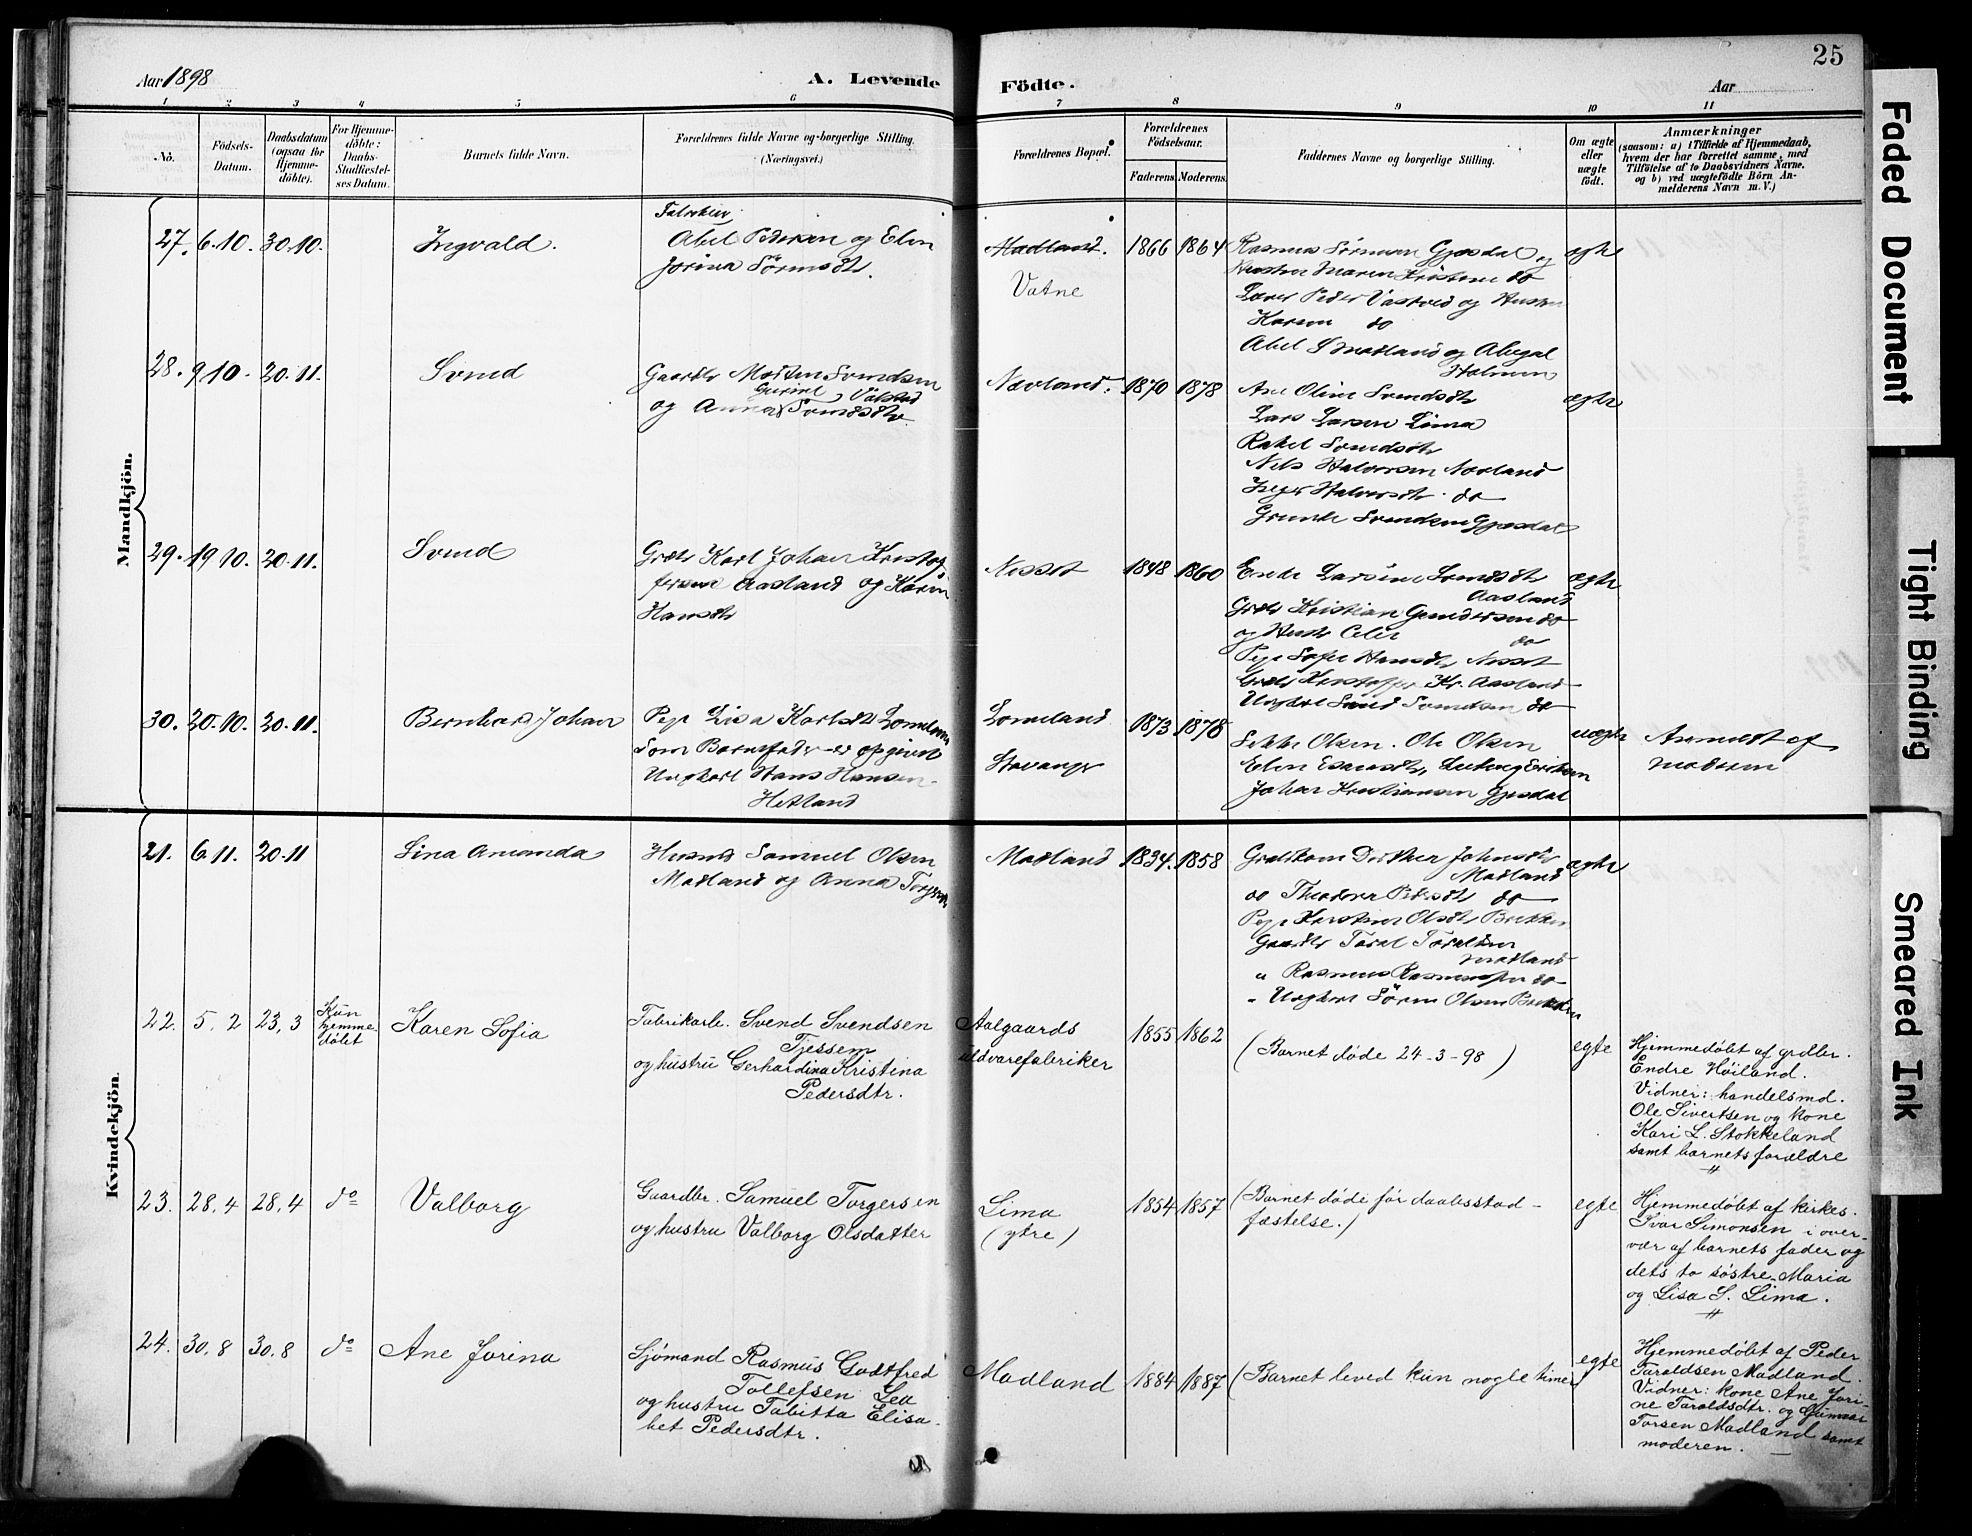 25
Aar 1898
A. Levende
Födte.
Aar
1 2 3 4 5 6 7 8 9 10 11
No.
Födsels-
Datum.
Daabsdatum
(ogsaa for
Hjemme-
döbte).
For Hjemme-
döbte:
Daabs-
Stadfæstel-
ses Datum.
Barnets fulde Navn.
Forældrenes fulde Navne og borgerlige Stilling.
(Næringsvei.)
Forældrenes Bopæl.
Forældrenes
Födselsaar.
Faderens
Moderens
Faddernes Navne og borgerlige Stilling.
Om ægte
eller
uægte
födt.
Anmærkninger
(saasom: a) i Tilfælde af Hjemmedaab,
hvem der har forrettet samme, med
Tilföielse af to Daabsvidners Navne.
og b) ved uægtefödte Börn An-
melderens Navn m. V.)
Mandkjön.
27. 6.10. 30.10.
Ingvald.
Abel Pedersen og Elen
Jorina Sörensdtr.
Madland.
Vatne
1866 1864
Rasmus Sörensen Gjesdal og
Hustru Maren Kristine do
Lærer Peder Vastved og Hustru
Karen do
Abel S Madland og Abegal
Holmen
ægte
28. 9.10. 20.11.
Svend
Gaardbr Morten Svendsen
og Anna Svendsdtr.
Nævland.
1870 1878
Ane Oline Svendsdtr
Lars Larsen Lima
Rakel Svendsdtr
Nils Halvorsen Nævland
Inger Halvorsdtr. do
Svendsen Gjesdal
ægte
29. 19 10. 20.11.
Svend
Grdbr Karl Johan Kristof
fersen Aasland og Karen
Hansdtr
Nesset
1848 1860
Larsine Svendsdtr
Aasland
Grdbr Kristian Gundersen do
og Hustr do
Pige Sofie Hansdtr Nesset
Grdbr Kristoffer Kr. Aasland
Ungkarl Svend Svendsen do
ægte
30. 20.10. 20.11.
Bernhard Johan
Pige Lisa Karlsdtr
Som Barnefader er opgivet
Ungkarl Hans Hansen
Hetland
Stavanger
1873 1878
Olsen. Ole Olsen
Johan Kristiansen Gjesdal
uægte
Anmeldt af
moderen
Kvindekjön.
21. 6.11. 20.11
Lina Amanda
Husmd Samuel Olsen
Madland og Anna
Madland
1834. 1858
Johnsdtr
Madland
og Theodora Pedersdtr do
Pige Olsdtr
Gaardbr Tarald Taraldsen
Madland
" Rasmus Rasmussen do
" Ungkarl Sören Olsen
ægte
22. 5, 2 23, 3
Kun
hjemme-
døbt
Karen Sofia
Fabrikarb. Svend Svendsen
Tjessem
og hustru Gerhardina Kristina
Pedersdtr.
Aalgaards
uldvarefabriker
1855 1862
(Barnet døde 24-3-98)
egte
Hjemmedøbt af grdbr.
Endre Høiland.
Vidner: handelsmd.
Ole Sivertsen og kone
Kari L. Stokkeland
samt barnets forældre
"
23. 28, 4 28, 4 do
Valborg
Gaardbr. Samuel Torgersen
og hustru Valborg Olsdatter
Lima
(ytre)
1854 1857
(Barnet døde før daabsstad-
fæstelse.)
egte
Hjemmedøbt af kirkes.
Ivar Simonsen i over-
vær af barnets fader og
dets to søstre Maria
og Lisa S. Lima.
"
24. 30, 8 30, 8 do
Ane Jorina
Sjømand Rasmus Godtfred
Tollefsen Lea
og hustru Tabitta Elisa-
bet Pedersdtr.
Madland
1884 1887
(Barnet leved kun nogle timer)
egte
Hjemmedøbt af Peder
Taraldsen Madland.
Vidner: kone Ane Jori-
ne Taraldsdtr. og Gunnar
Torsen Madland samt
moderen.
Faded Document
Tight Binding
Smeared Ink